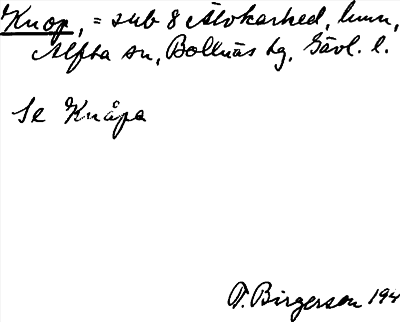 Knop, = sub 8 Älvkarhed, hmn,
Alfta sn, Bollnäs tg, Gävl. l.
Se Knåpa
T. Birgerson 194